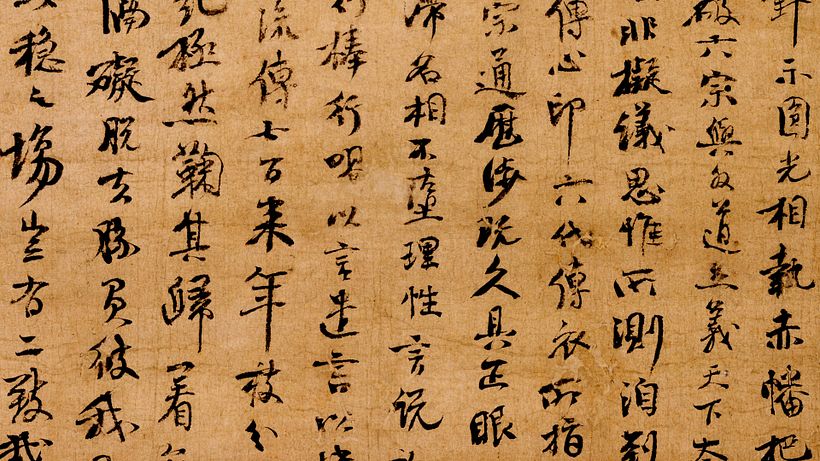 針示圓光相執赤幡把
破六宗與外道立義天下太
非擬議思惟所測洎到
傳心印六代傳衣所指
宗通歷涉既久具正眼
滯名相不墮理性言說
行棒行喝以言遣言以
流傳七百来年枝分
紀極然鞠其歸著
隔礙脫去勝負彼我
穩之場豈有二致哉